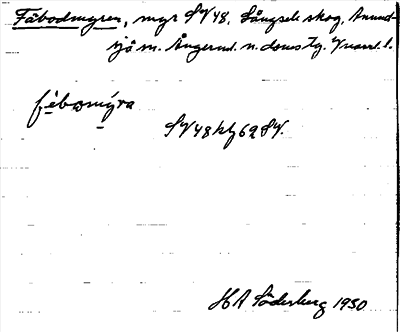 Fäbodmyren, myr SV48, Långsele skog, Anund-
sjö sn. Ångerml. n. domstg. Västernl. l.
fèbomýra
SV48 hfg 62 SV.
HA Söderberg 1930